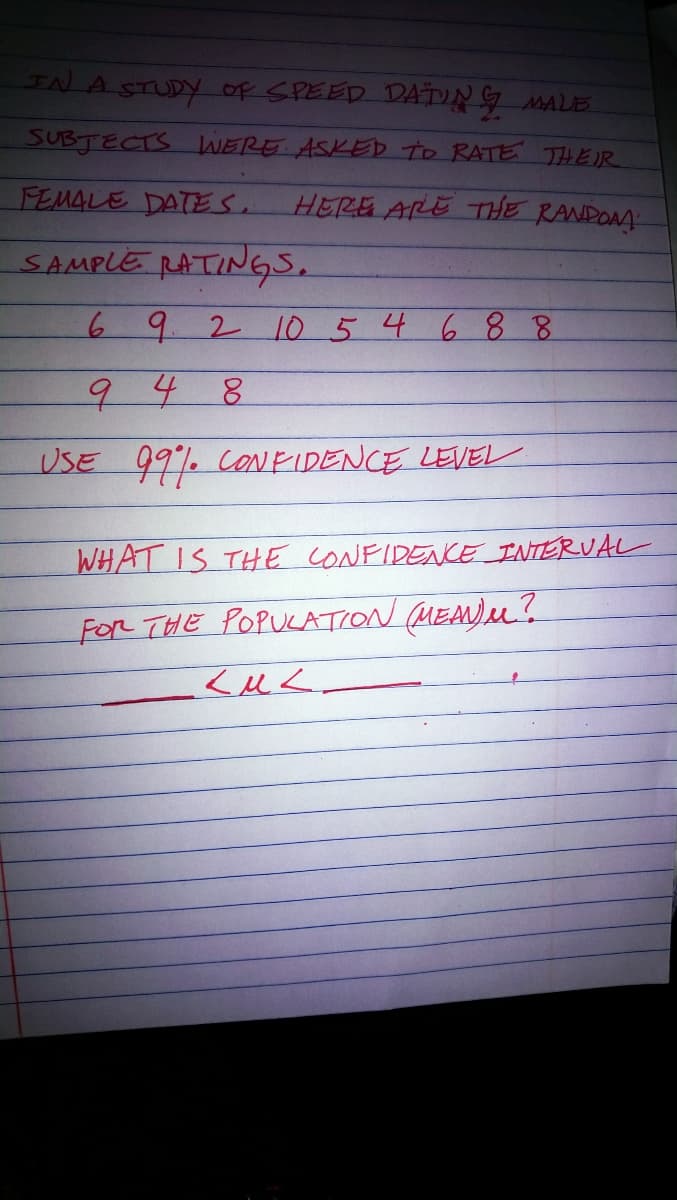 IN A STUDY OF SPEED DATING MALE
SUBJECTS WERE ASKED TO RATE THEIR
FEMALE DATES. HERE ARE THE RANDOM
SAMPLE RATINGS.
6 9 2 10 5 4 6 8 8
9 4 8
USE 99% CONFIDENCE LEVEL
WHAT IS THE CONFIDENCE INTERVAL
FOR THE POPULATION (MEAN) μ?
___ < μ < ___